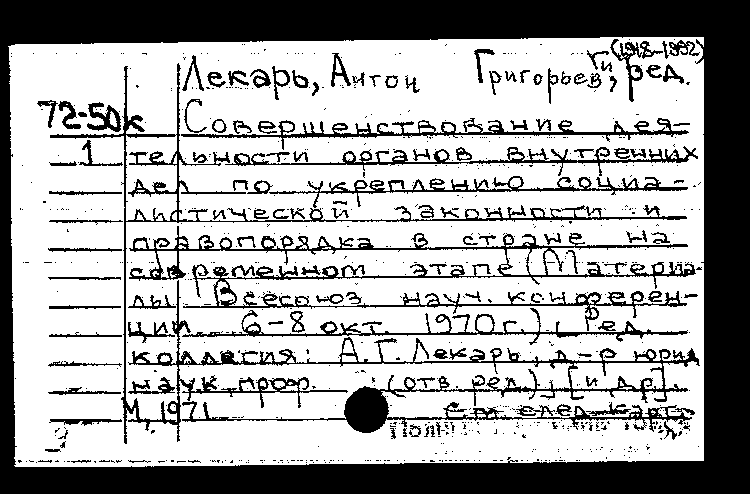 (1918-1992)
Лекарь, Антон Григорьевич, ред.
72-50к Совершенствование дея-
1 тельности органов внутренних
дел по укреплению социа-
листической законности и
правопорядка в стране на
современном этапе (Материа-
лы Всесоюз. науч. конферен-
ции 6-8 окт. 1970 г.). Ред.
коллегия: А.Г. Лекарь, д-р юрид.
наук, проф. (отв. ред.), [и др.].
М., 1971 См. след. карт.
9